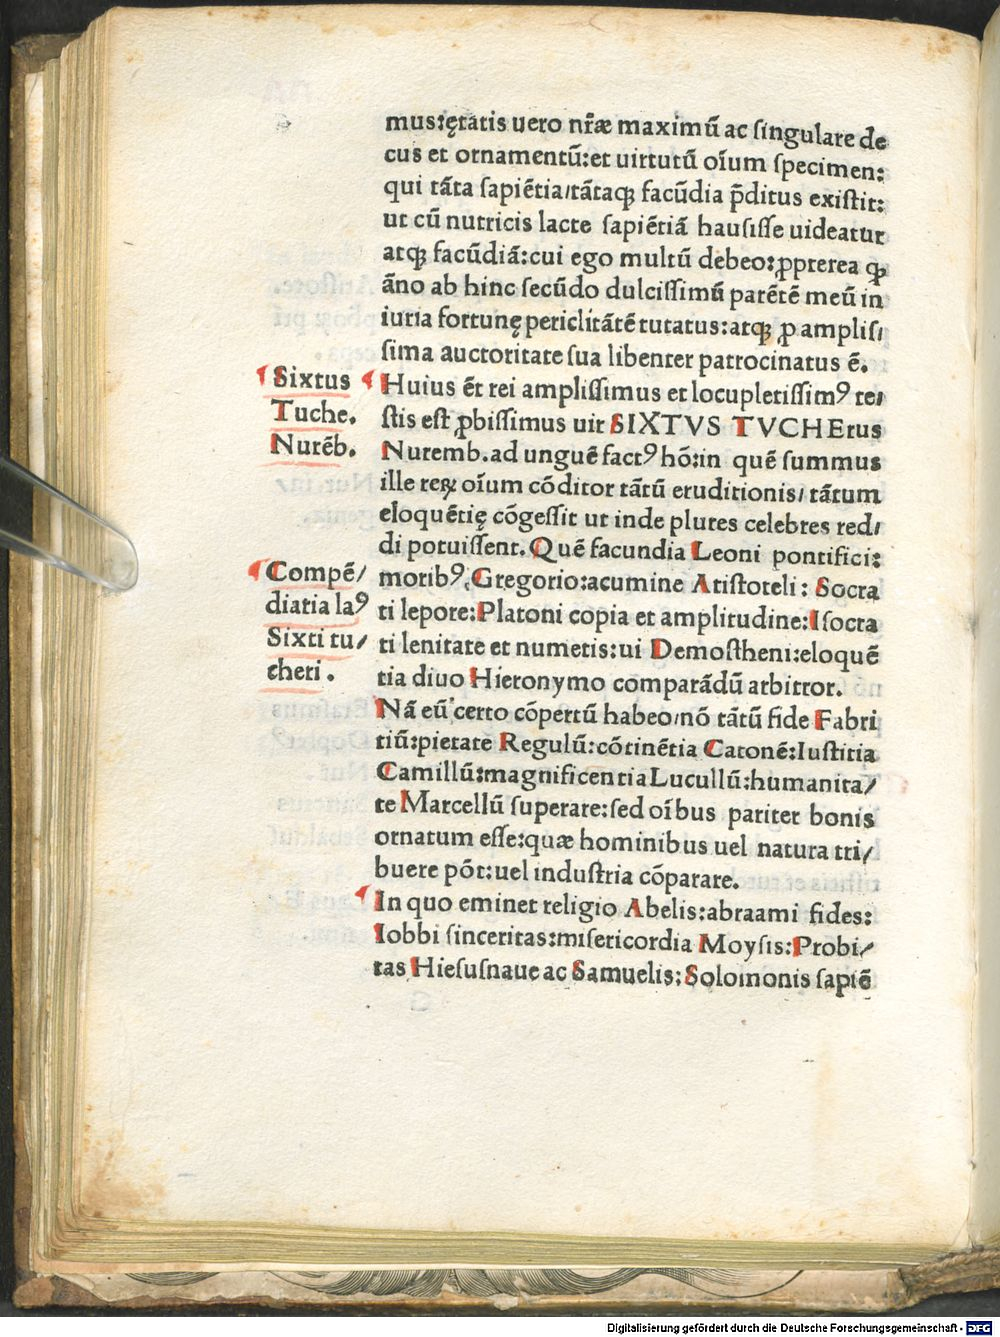 mus:ętatis uero nr̃æ maximū ac singulare de
cus et ornamentū:et uirtutū oīum specimen:
qui tāta sapiētia/tātaqꝫ facūdia p̄ditus existit:
ut cū nutricis lacte sapiētiā hausisse uideatur
atqꝫ facūdiā:cui ego multū debeo:ꝓpterea ꝙ
āno ab hinc secūdo dulcissimū parētē meū in
iuria fortunę periclitātē tutatus:atqꝫ ꝓ amplis/
sima auctoritate sua libenter patrocinatus ē.
Sixtus
Tuche.
Nurēb.
Huius ēt rei amplissimus et locupletissimꝰ te/
stis est ꝓbissimus uir SIXTVS TVCHErus
Nuremb. ad unguē factꝰ hō:in quē summus
ille reꝝ oīum cōditor tātū eruditionis/ tātum
eloquētię cōgessit ut inde plures celebres red/
di potuissent. Quē facundia Leoni pontifici:
Compē/
diaria laꝰ
Sixti tu/
cheri.
moribꝰ, Gregorio:acumine Aristoteli: Socra
ti lepore:Platoni copia et amplitudine:Isocra
ti lenitate et numeris:ui Demostheni:eloquē
tia diuo Hieronymo comparādū arbitror.
Nā eū certo cōpertū habeo/nō tātū fide Fabri
tiū:pietate Regulū:cōtinētia Catonē:Iustitia
Camillū:magnificentia Lucullū:humanita/
te Marcellū superare:sed oībus pariter bonis
ornatum esse:quæ hominibus uel natura tri/
buere pōt:uel industria cōparare.
In quo eminet religio Abelis:abraami fides:
Iobbi sinceritas:misericordia Moysis:Probi/
tas Hiesusnaue ac Samuelis:Solomonis sapiē
Digitalisierung gefördert durch die Deutsche Forschungsgemeinschaft - DFG